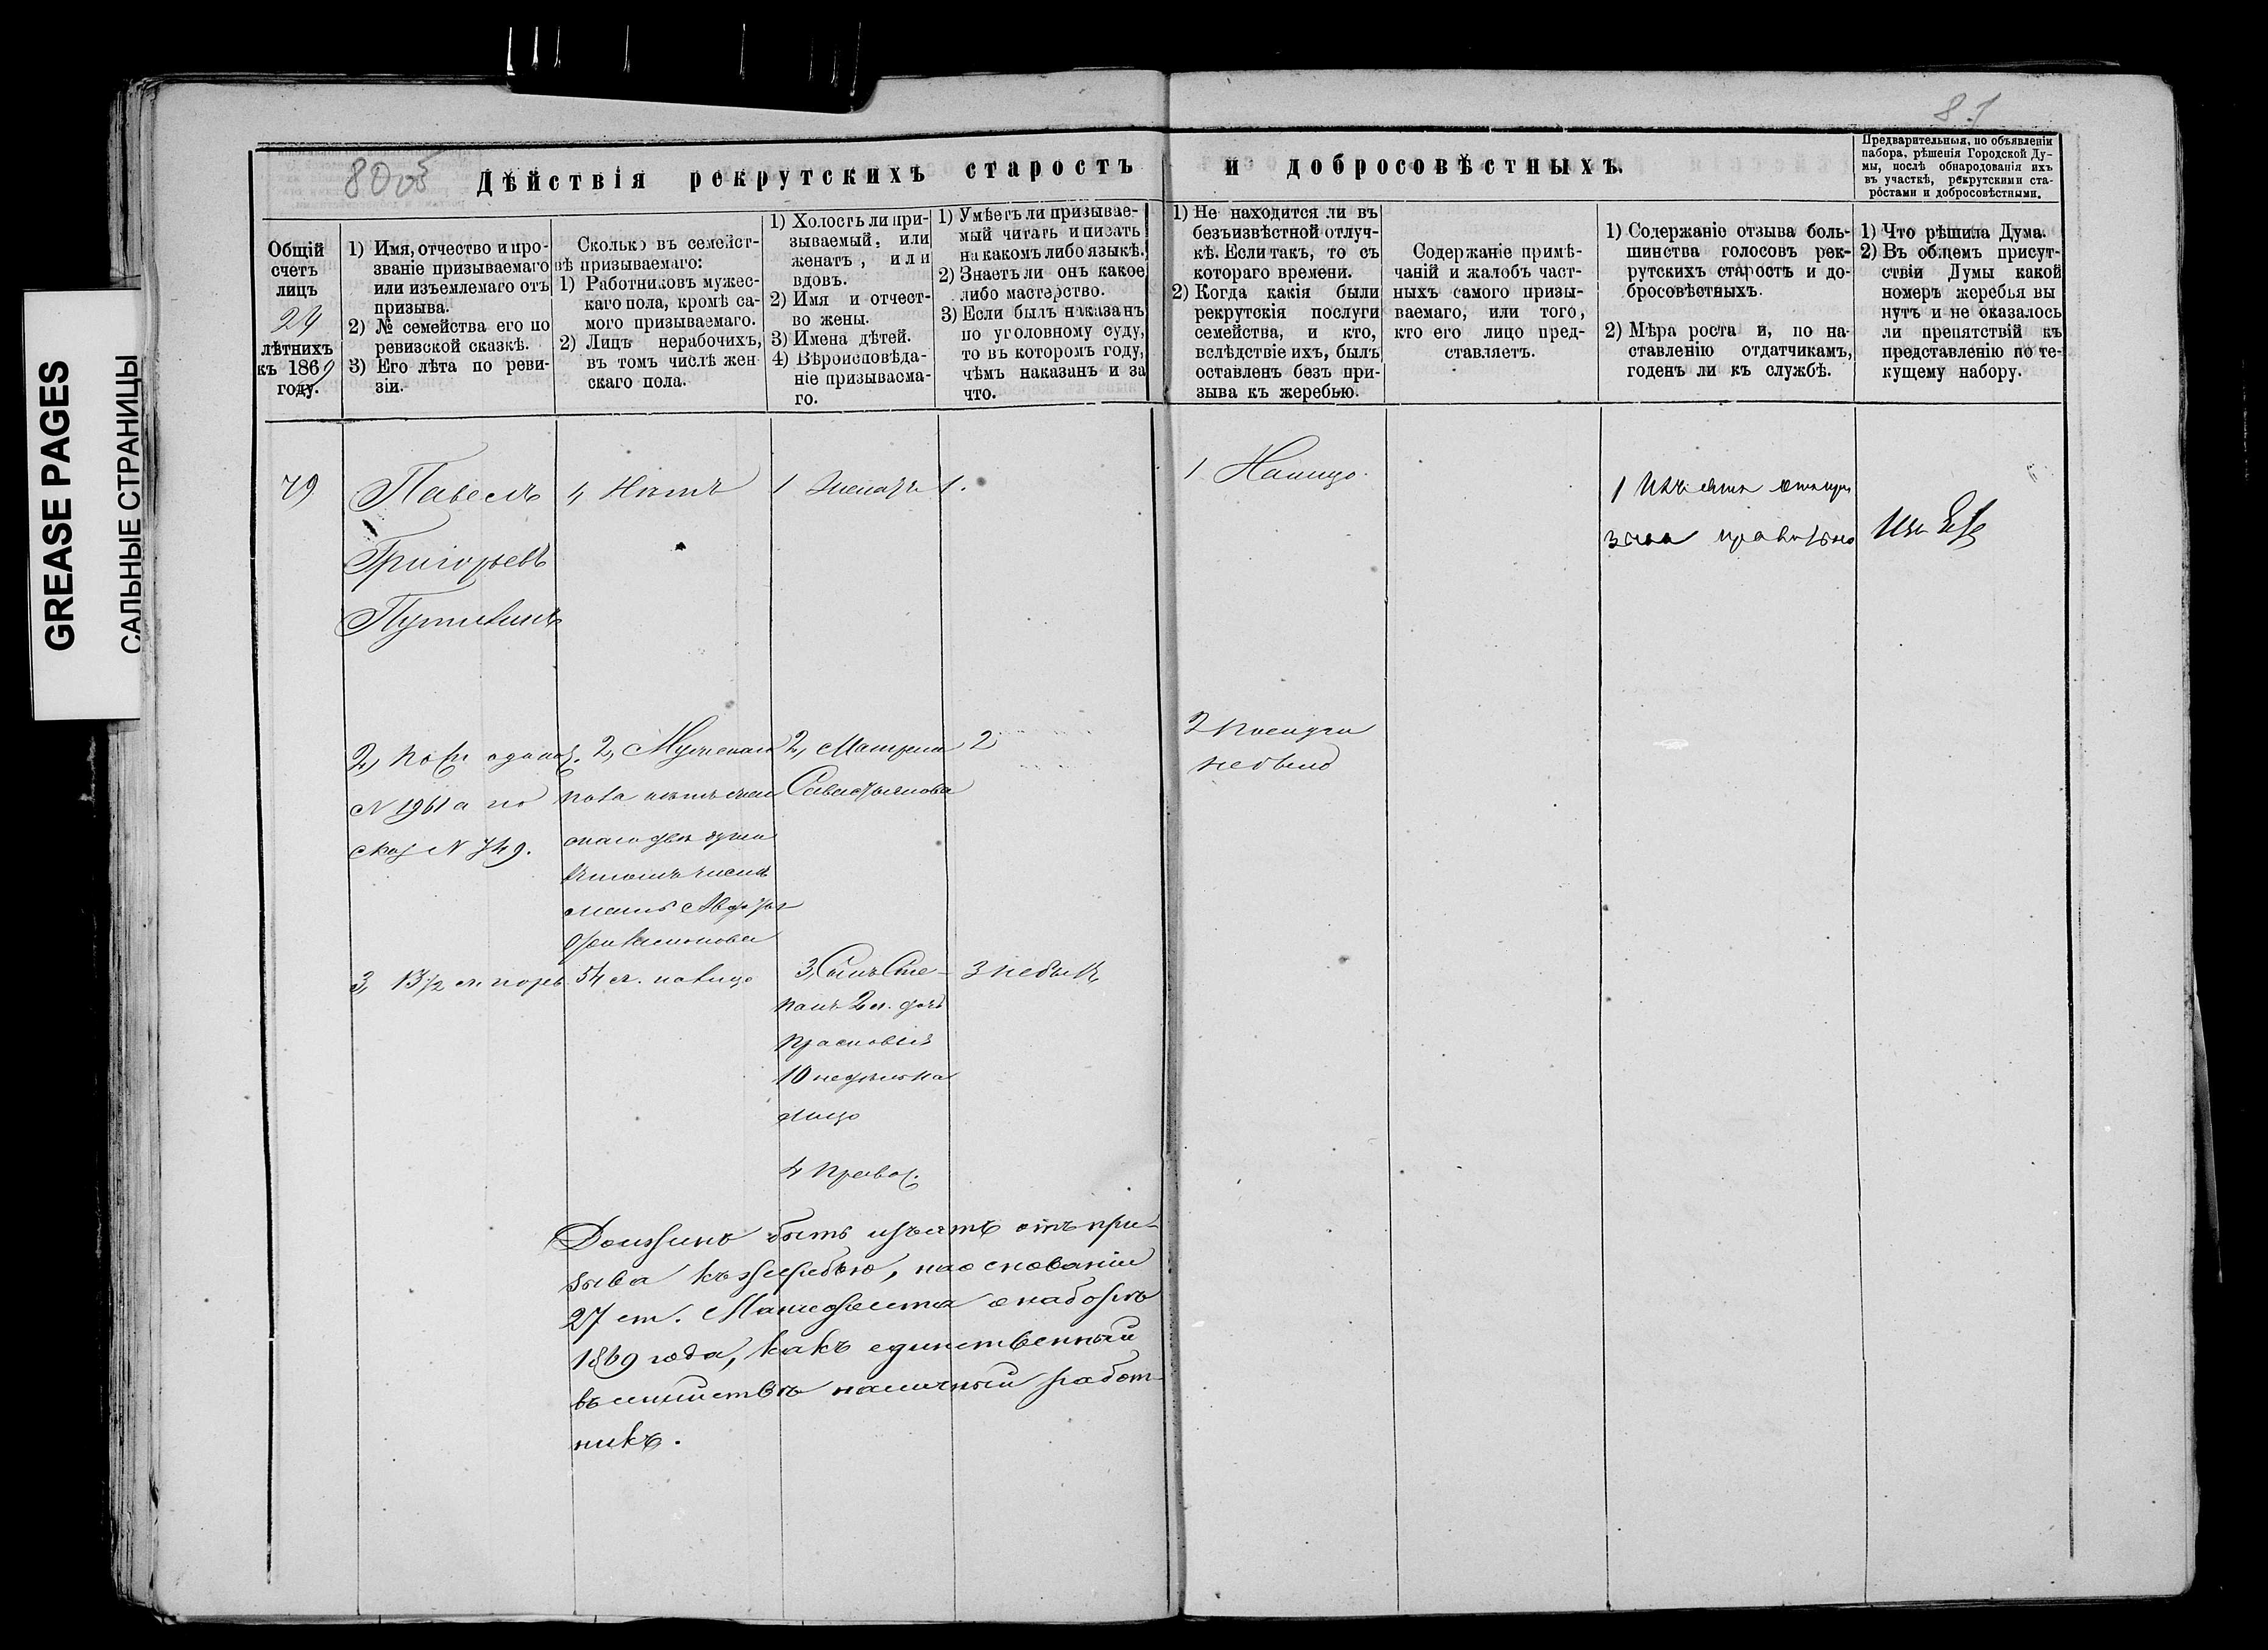 GREASE PAGES
САЛЬНЫЕ СТРАНИЦЫ
80 об
81
Дѣйствія рекрутскихъ старостъ и добросовѣстныхъ.
Предварительныя, по объявленіи
набора, рѣшенія Городской Ду-
мы, послѣ обнародованія ихъ
въ участкѣ, рекрутскими ста-
ростами и добросовѣстными.
Общій
счетъ
лицъ
24
лѣтнихъ
къ 1869
году.
1) Имя, отчество и про-
званіе призываемаго
или изъемлемаго отъ
призыва.
2) № семейства его по
ревизской сказкѣ.
3) Его лѣта по реви-
зіи.
Сколько въ семейст-
вѣ призываемаго:
1) Работниковъ мужес-
каго пола, кромѣ са-
мого призываемаго.
2) Лицъ нерабочихъ,
въ томъ числѣ жен-
скаго пола.
1) Холостъ ли при-
зываемый, или
женатъ, или
вдовъ.
2) Имя и отчест-
во жены.
3) Имена дѣтей.
4) Вѣроисповѣда-
ніе призываема-
го.
1) Умѣетъ ли призывае-
мый читать и писать
на какомъ либо языкѣ.
2) Знаетъ ли онъ какое
либо мастерство.
3) Если былъ наказанъ
по уголовному суду,
то въ которомъ году,
чѣмъ наказанъ и за
что.
1) Не находится ли въ
безъизвѣстной отлуч-
кѣ. Если такъ, то съ
котораго времени.
2) Когда какія были
рекрутскія послуги
семейства, и кто,
вслѣдствіе ихъ, былъ
оставленъ безъ при-
зыва къ жеребью.
Содержаніе примѣ-
чаній и жалобъ част-
ныхъ самого призы-
ваемаго, или того,
кто его лицо пред-
ставляетъ.
1) Содержаніе отзыва боль-
шинства голосовъ рек-
рутскихъ старостъ и до-
бросовѣстныхъ.
2) Мѣра роста и, по на-
ставленію отдатчикамъ,
годенъ ли къ службѣ.
1) Что рѣшила Дума.
2) Въ общемъ присут-
ствіи Думы какой
номеръ жеребья вы
нутъ и не оказалось
ли препятствій къ
представленію по те-
кущему набору.
79
Павелъ
Григорьевъ
2,
N 1961 а по
сказ N 749.
3, 13 1/2 л.
1, Нѣтъ
2, Мужескаго
пола нѣтъ жен
скаго двѣ души
въ томъ числѣ
мать
54 л. налицо
1 Женатъ
2, Матрена
Савастьянова
3, Сынъ Сте-
панъ 2 л. дочь
Прасковья
10 недѣль на
лицо
4 Правос.
1.
2
3 небылъ
1 Налицо.
2 Послуги
небыло
1 Изъятъ отъ призы
ва правильно
Долженъ быть изъятъ отъ при-
зыва къ жеребью, на основаніи
27 ст. Манифеста о наборѣ
1869 года, какъ единственный
въ семействѣ наличный работ-
никъ.